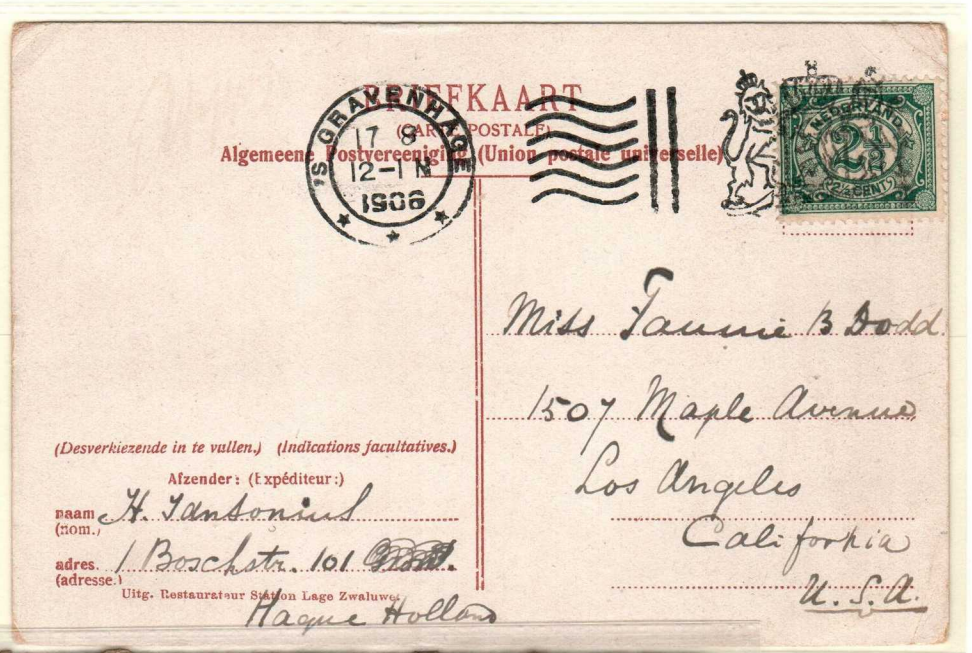 BRIEFKAART
(CARTE POSTALE)
Algemeene Postvereeniging (Union postale universelle)
'S GRAVENHAGE
17 8
12-1 N
1906
NEDERLAND
2½
2½ CENT
Miss Fannie B Dodd
1507 Maple Avenue
Los Angeles
California
U.S.A.
(Desverkiezende in te vullen.) (Indications facultatives.)
Afzender: (Expéditeur:)
naam H. Jansonius
(nom.)
adres. 1 Boschstr. 101
(adresse.)
Uitg. Restaurateur Station Lage Zwaluwe.
Hague Holland